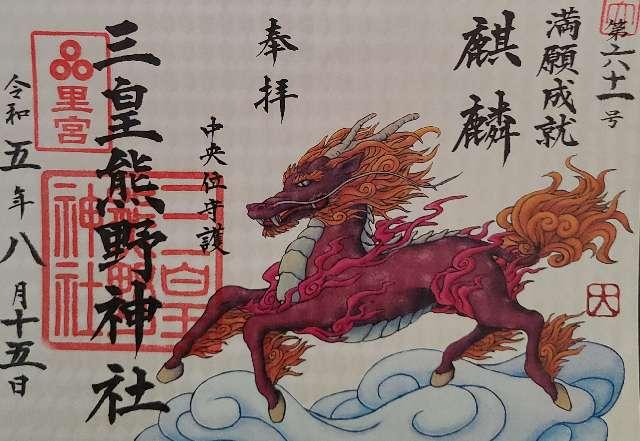 第六十一号
満願成就
麒麟
奉拝
中央位守護
三皇熊野神社
里宮
三皇熊野神社
令和五年八月十五日